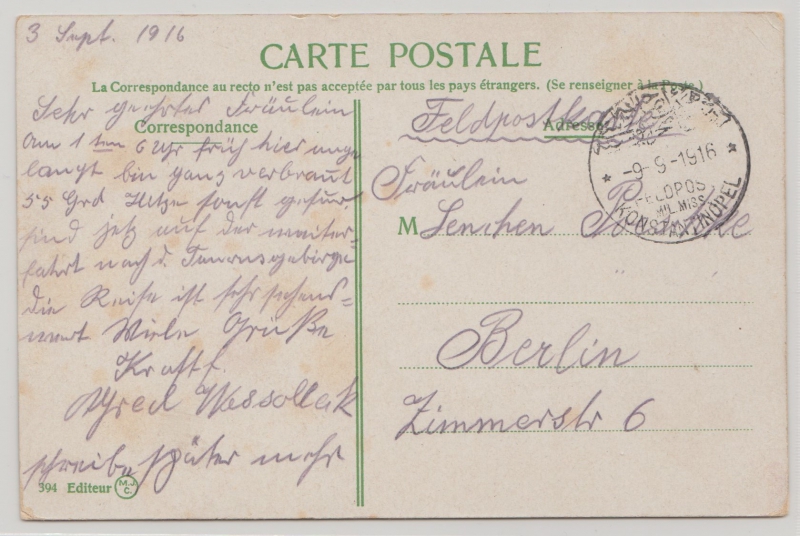 3 Sept. 1916
CARTE POSTALE
La Correspondance au recto n'est pas acceptée par tous les pays étrangers. (Se renseigner à la Poste.)
Correspondance
Sehr geehrtes Fräulein
Am 1 ten 6 Uhr früh hier ange
langt bin ganz verbrannt
55 Grd Hitze sonst gesund
sind jetz auf der weiter-
fahrt nach d. Taurusgebirge
die Reise ist sehr sehens-
wert Viele Grüße
Kraftf.
Alfred Wessolleck
schreibe später mehr
394 Editeur M.J.C.
Feldpostkarte
Adresse
Fräulein
M Lenchen
Berlin
Zimmerstr 6
-9-9-1916
FELDPOST
MIL. MISS.
KONSTANTINOPEL